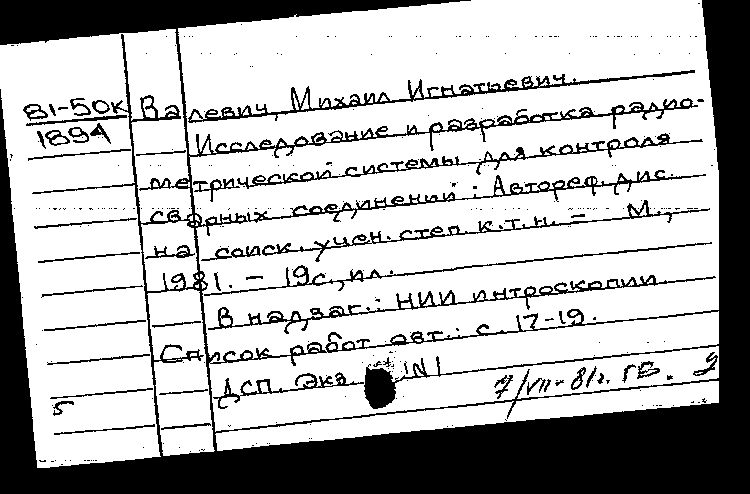 81-50к Валевич, Михаил Игнатьевич.
1894 Исследование и разработка радио-
метрической системы для контроля
сварных соединений : Автореф. дис.
на соиск. учен. степ. к.т.н. - М.,
1981. - 19с., ил.
В надзаг.: НИИ интроскопии.
Список работ авт.: с. 17-19.
ДСП. Экз. N1
5 7/VII-81г. ГБ.